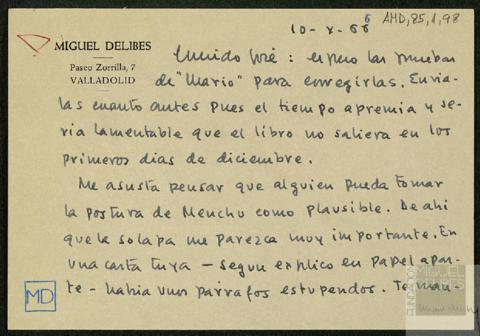 10-X-66
6
AMD,85,1,98
MIGUEL DELIBES
Paseo Zorrilla, 7
VALLADOLID
Querido José: espero las pruebas
de "Mario" para corregirlas. Envía-
las cuanto antes pues el tiempo apremia y se-
ría lamentable que el libro no saliera en los
primeros días de diciembre.
Me asusta pensar que alguien pueda tomar
la postura de Menchu como plausible. De ahí
que la solapa me parezca muy importante. En
una carta tuya — según explico en papel apar-
te — había unos párrafos estupendos. Te man-
MD
FUNDACIÓN
MIGUEL
DELIBES